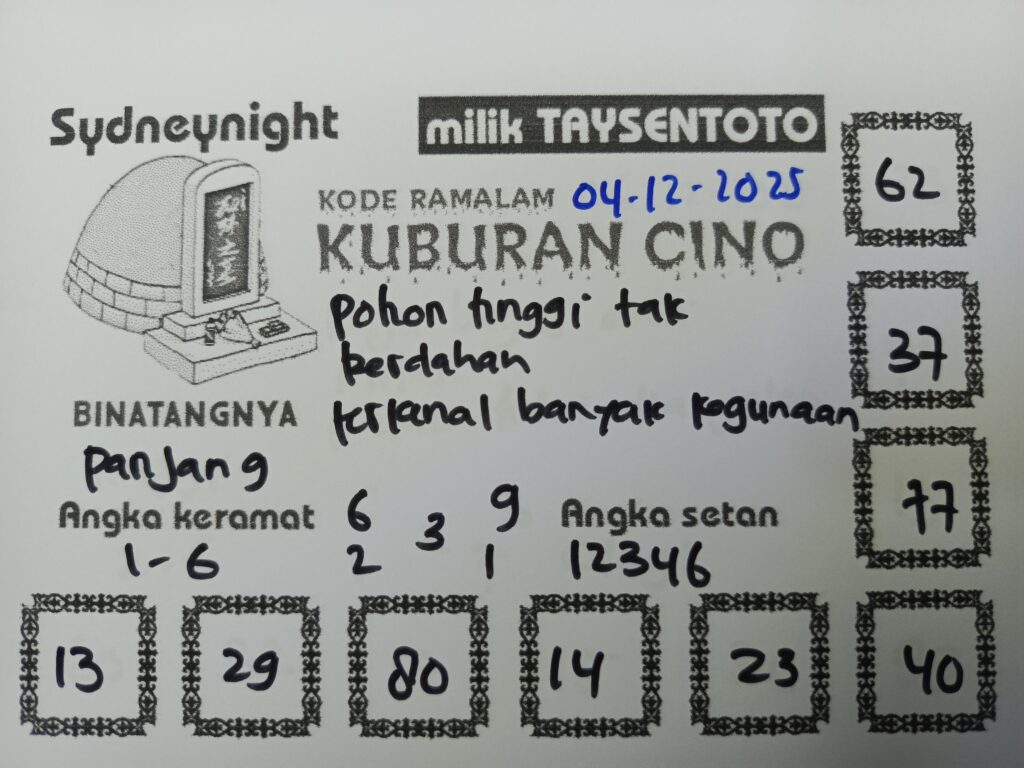 Sydneynight
milik TAYSENTOTO
KODE RAMALAM 04-12-2025
KUBURAN CINO
pohon tinggi tak
berdahan
terkenal banyak kegunaan
BINATANGNYA
panjang
Angka keramat
1-6
6 9
3
2 1
Angka setan
12346
62
37
77
13 29 80 14 23 40